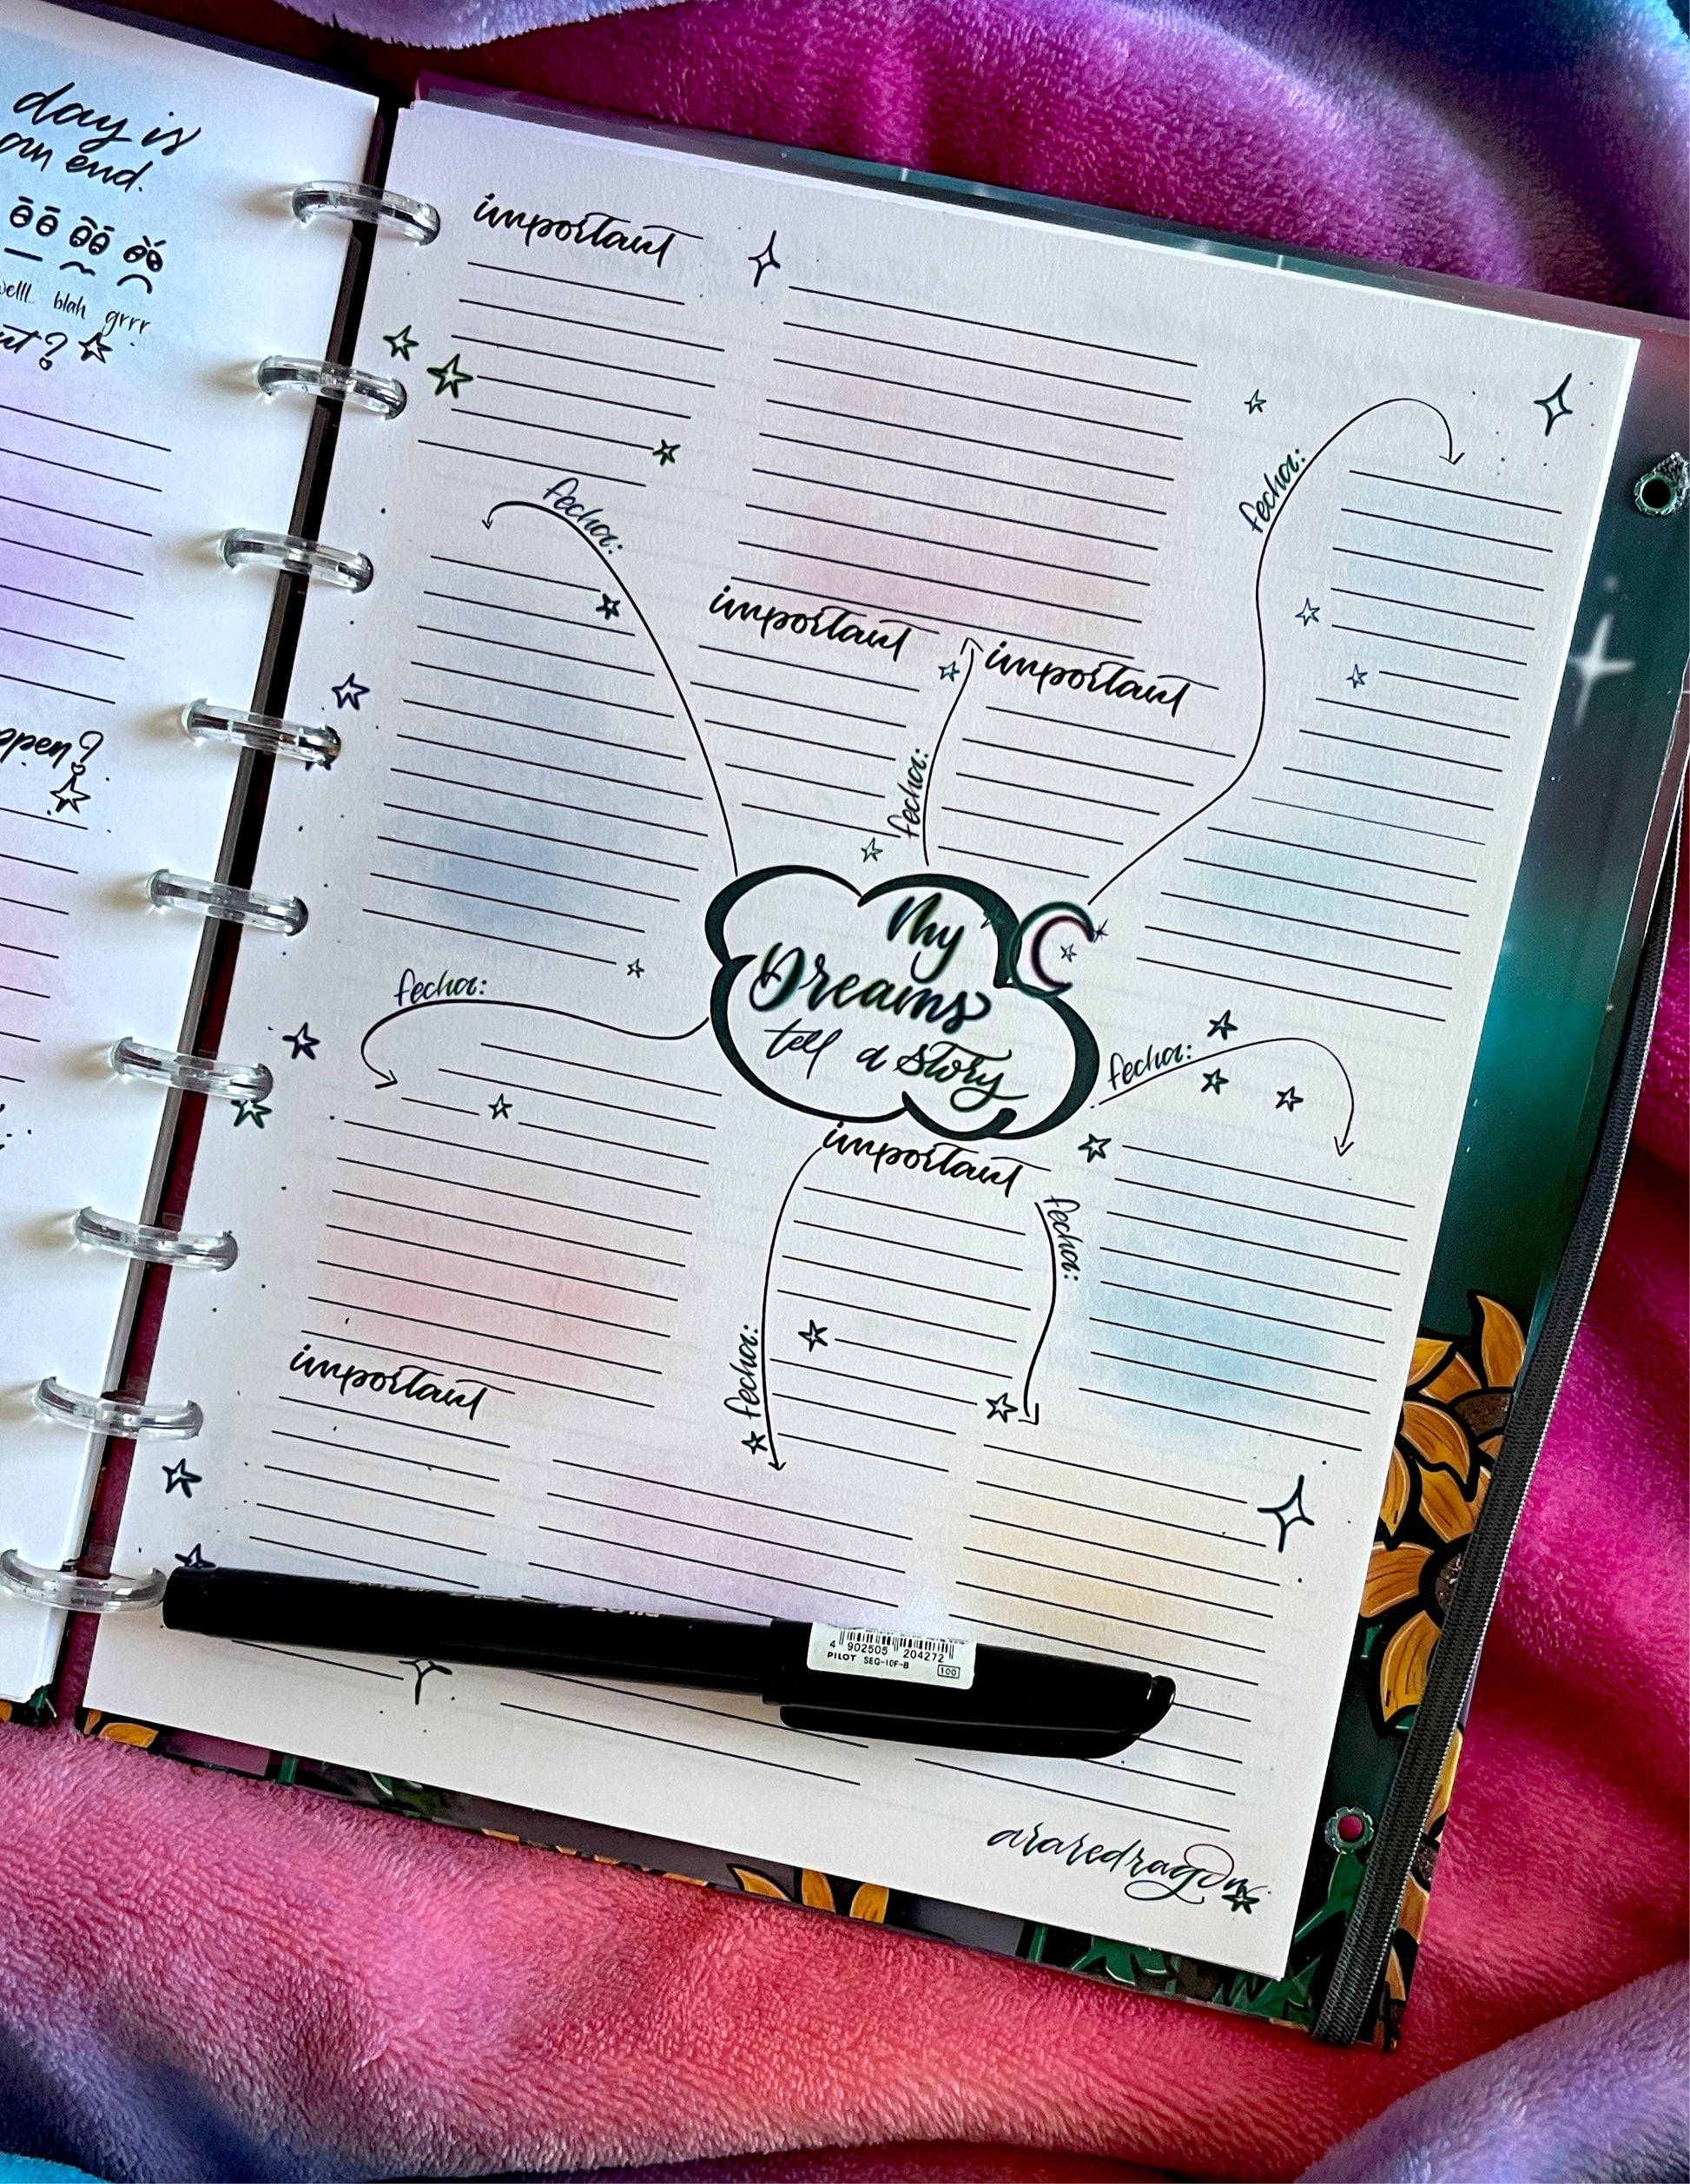 day is
an end.
welll.. blah grrr
ut?
ppen?
important
fecha:
fecha:
important
important
fecha:
My
Dreams
tell a story
fecha:
fecha:
important
fecha:
fecha:
important
4 902505 204272
PILOT SEG-10F-B
100
araredragon